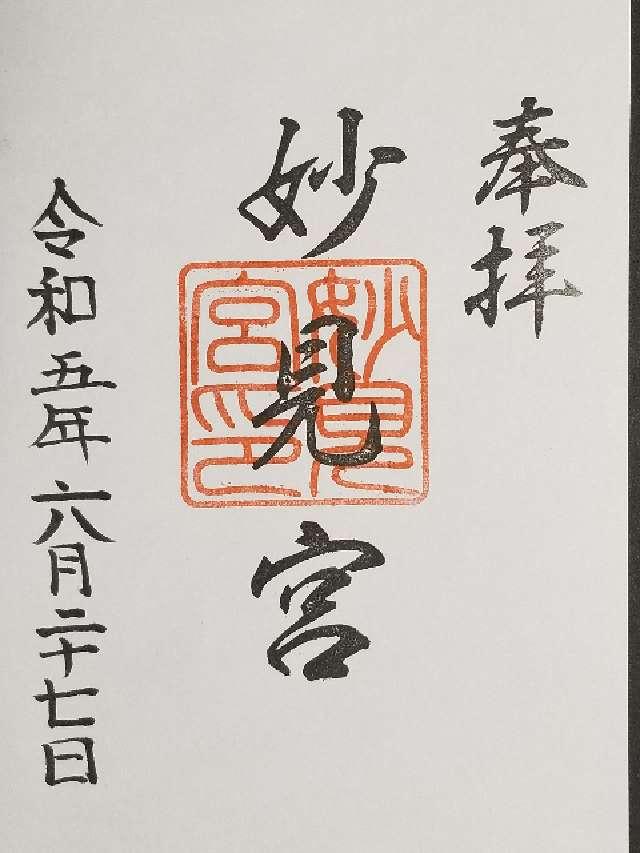 奉拝
妙見宮
妙見宮印
令和五年六月二十七日